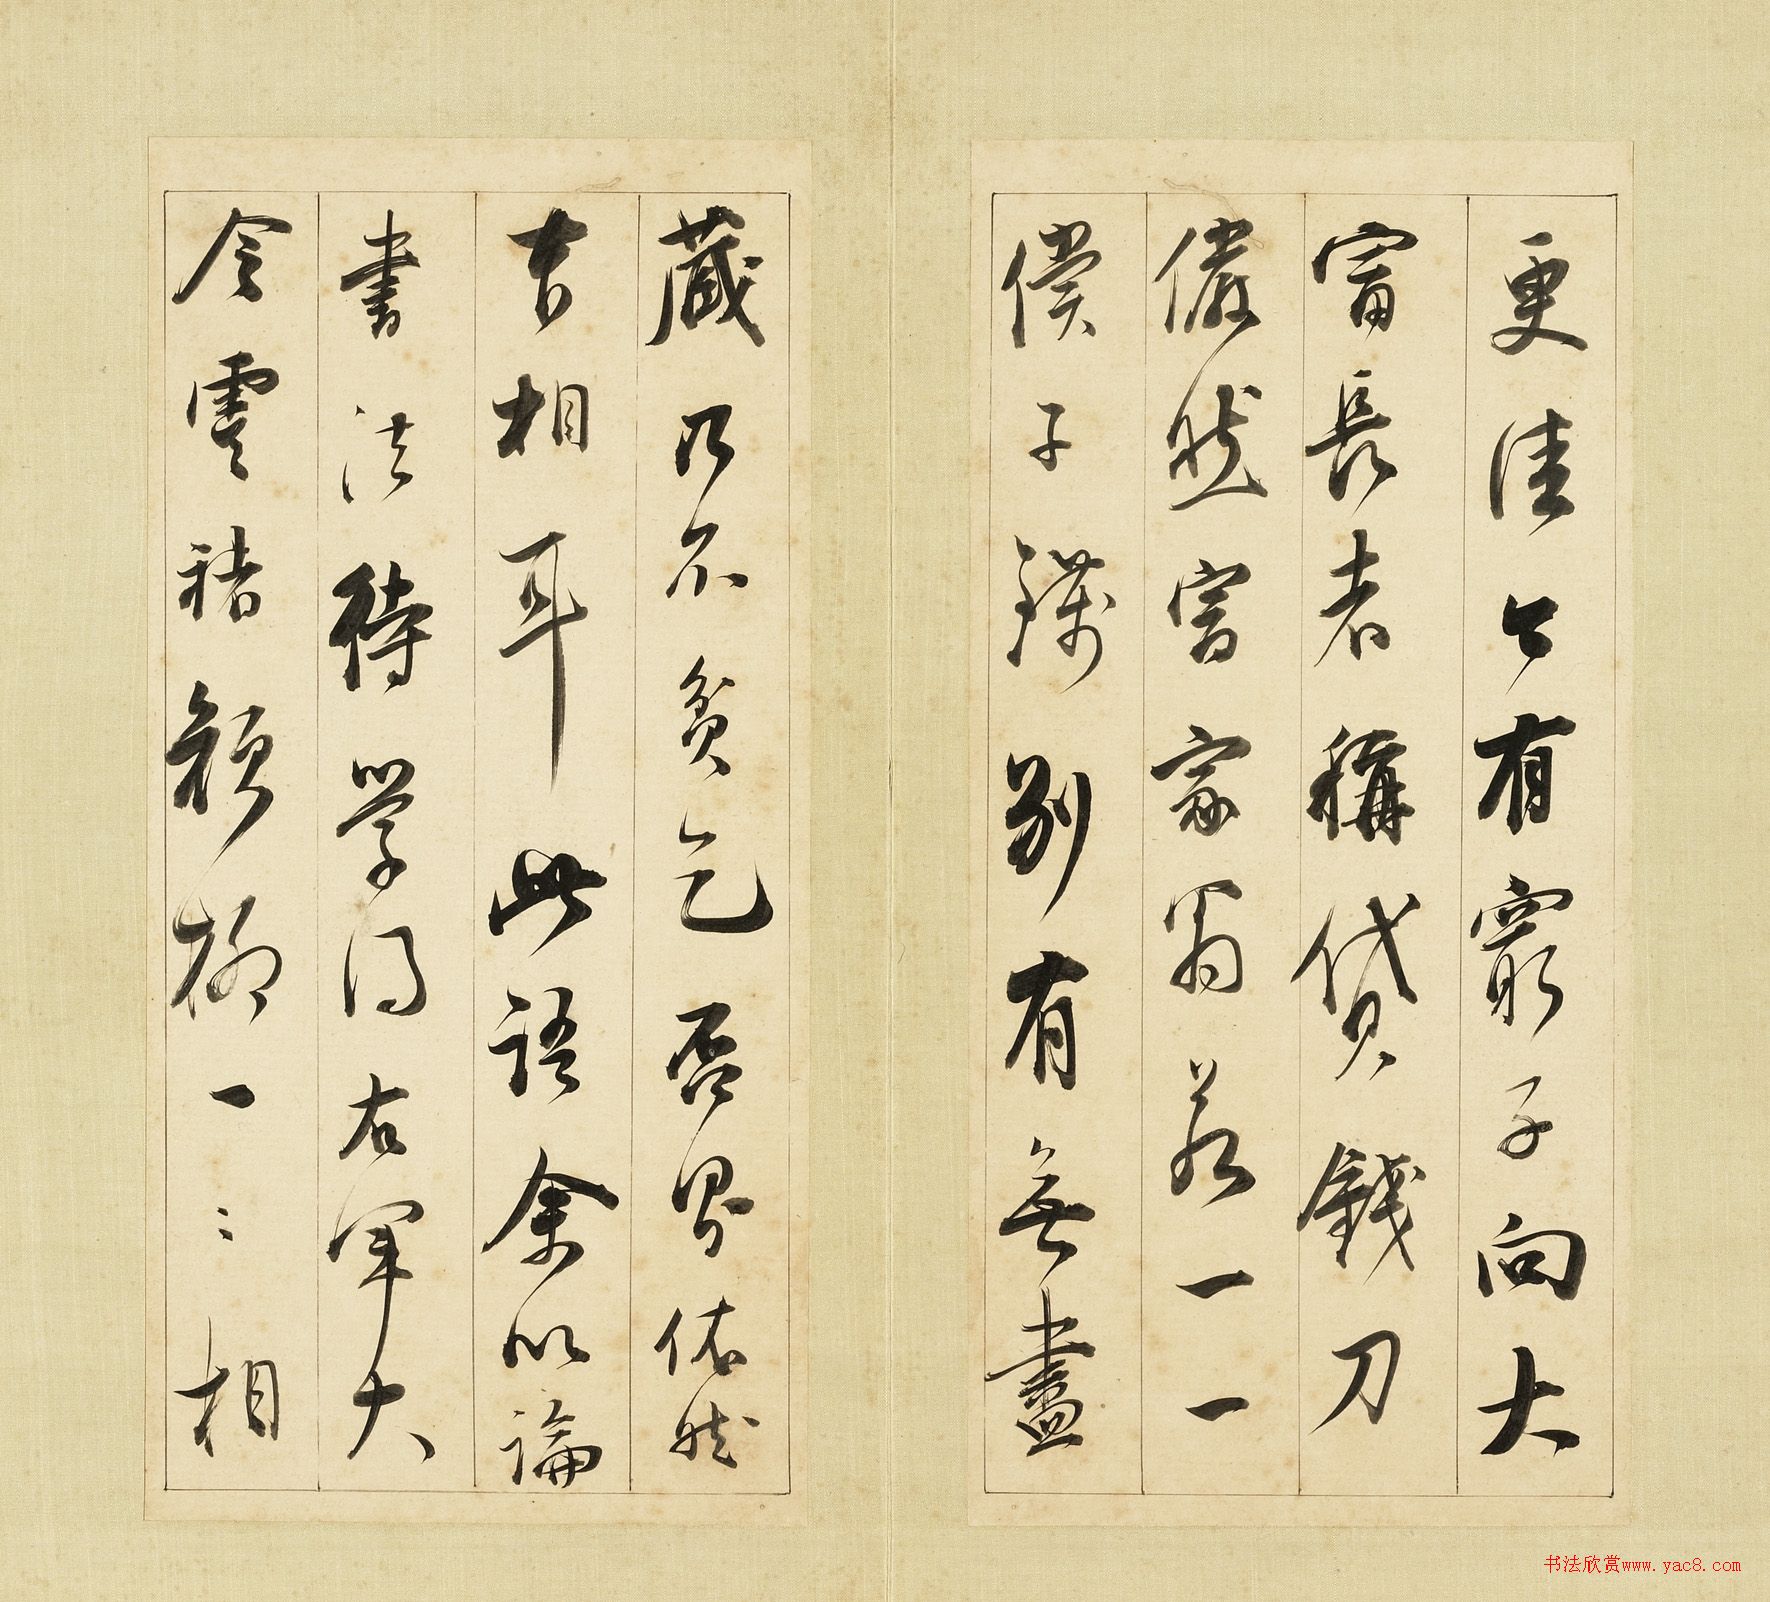 更佳公有窮子向大
富長者稱貸錢刀
儼然富家翁若一一
償子錢別有無盡
藏乃不貧乞否畧依然
吉相耳此語余以論
書法待學得右軍大
令虞褚顏柳一〻相
书法欣赏www.yac8.com